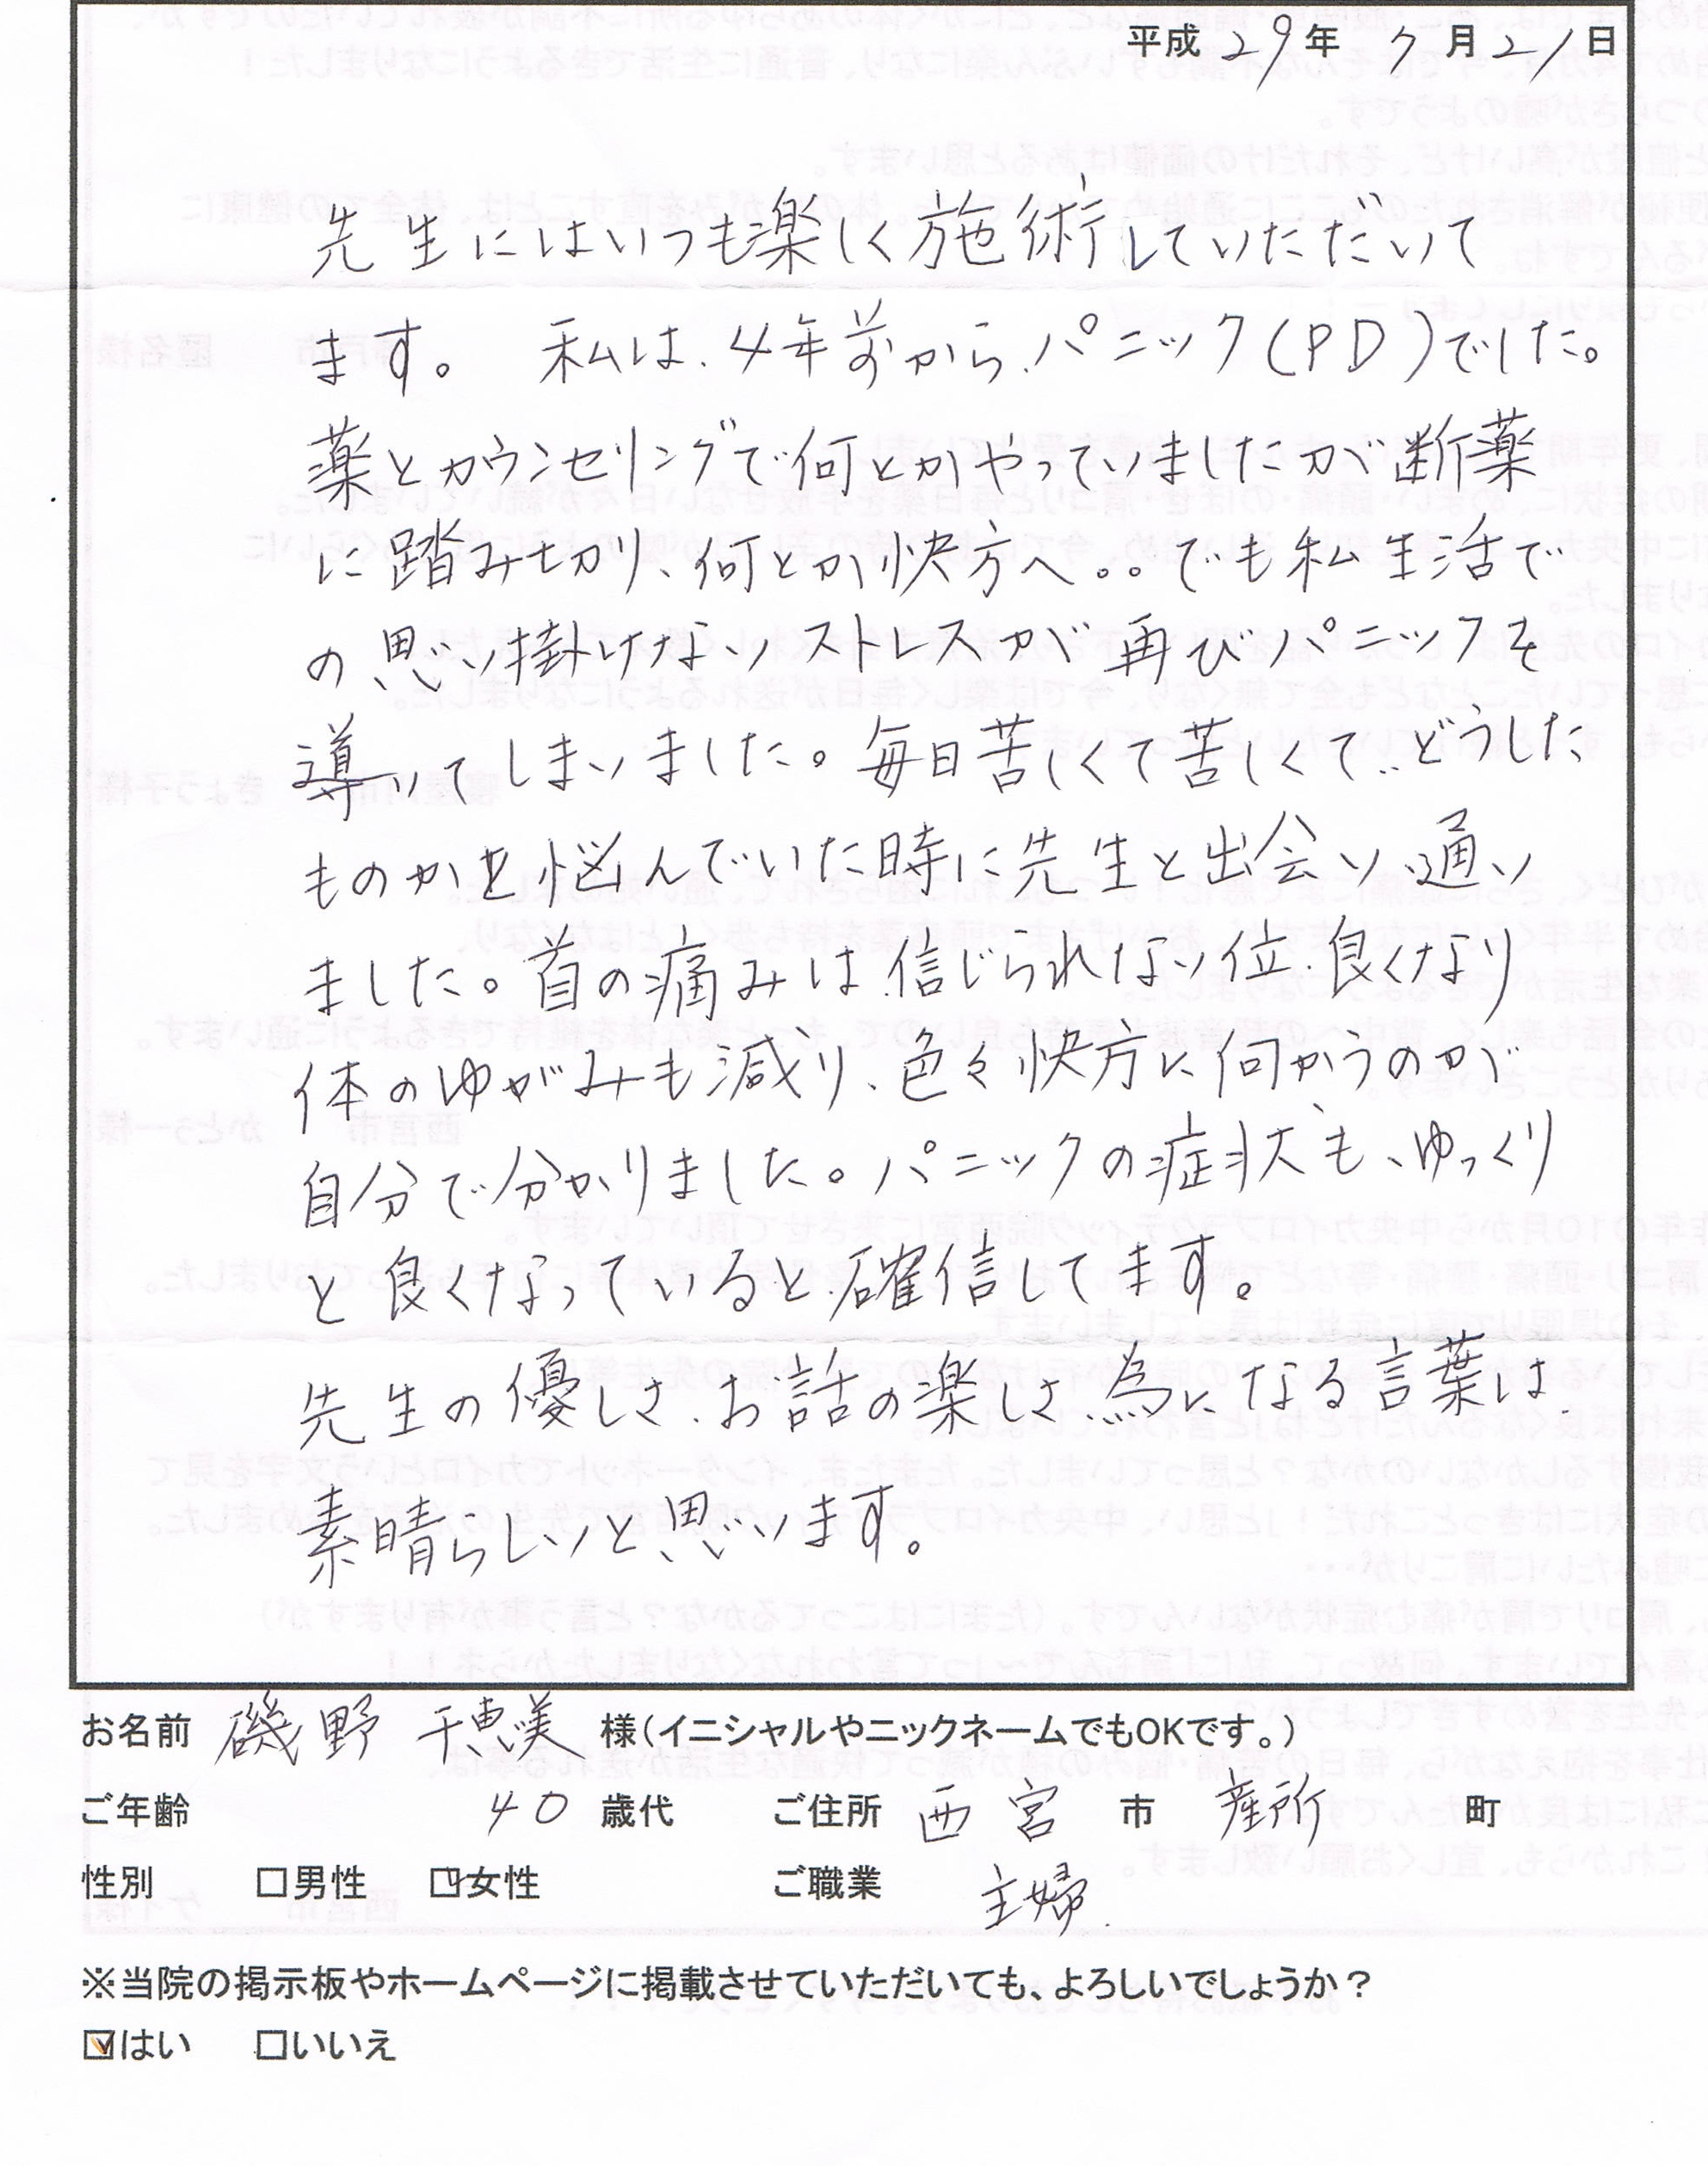 平成29年 7月21日
先生にはいつも楽しく施術していただいて
ます。 私は、4年前から、パニック(PD)でした。
薬とカウンセリングで何とかやっていましたが断薬
に踏み切り、何とか快方へ。。でも私生活で
の思い掛けないストレスが再びパニックを
導いてしまいました。毎日苦しくて苦しくて..どうした
ものかと悩んでいた時に先生と出会い、通い
ました。首の痛みは、信じられない位、良くなり
体のゆがみも減り、色々快方に向かうのが
自分で分かりました。パニックの症状も、ゆっくり
と良くなっていると、確信してます。
先生の優しさ、お話の楽しさ、為になる言葉は、
素晴らしいと思います。
お名前 磯野 千恵美 様(イニシャルやニックネームでもOKです。)
ご年齢 40 歳代 ご住所 西宮 市 産所 町
性別 □男性 ☑女性 ご職業 主婦.
※当院の掲示板やホームページに掲載させていただいても、よろしいでしょうか？
☑はい □いいえ